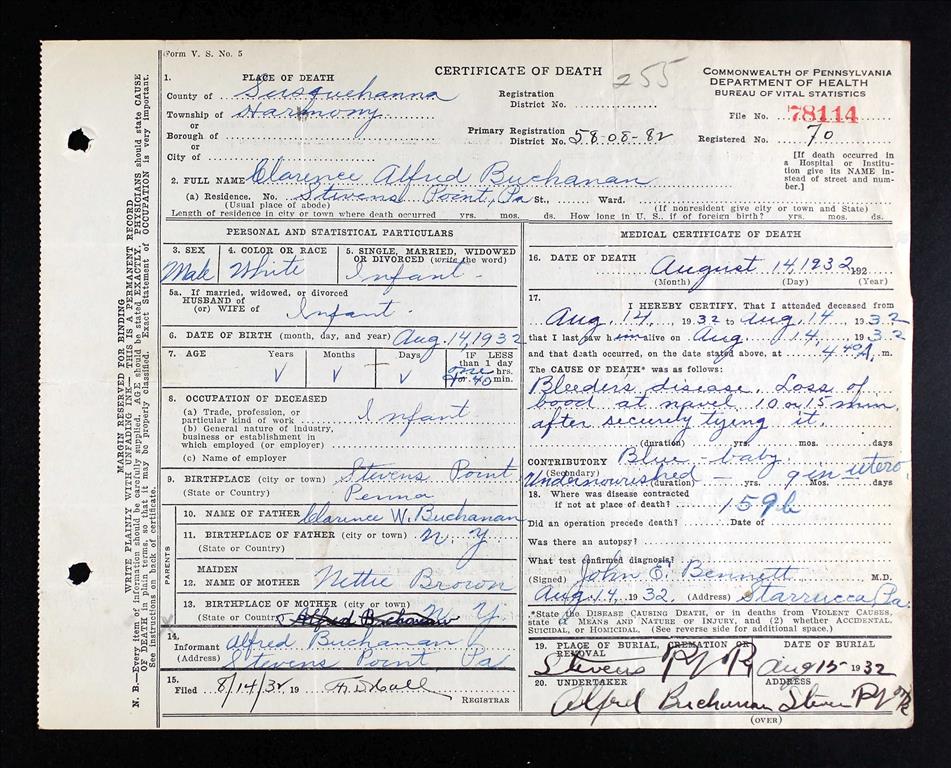 Form V. S. No. 5
CERTIFICATE OF DEATH
255
COMMONWEALTH OF PENNSYLVANIA
DEPARTMENT OF HEALTH
BUREAU OF VITAL STATISTICS
1. PLACE OF DEATH
County of Susquehanna
Township of Harmony
or
Borough of
or
City of
Registration
District No.
Primary Registration
District No. 58-08-82
File No. 78114
Registered No. 70
[If death occurred in
a Hospital or Institu-
tion give its NAME in-
stead of street and num-
ber.]
2. FULL NAME Clarence Alfred Buchanan
(a) Residence. No. Stevens Point, Pa St., Ward.
(Usual place of abode) (If nonresident give city or town and State)
Length of residence in city or town where death occurred yrs. mos. ds. How long in U. S., if of foreign birth? yrs. mos. ds.
PERSONAL AND STATISTICAL PARTICULARS
3. SEX
Male
4. COLOR OR RACE
White
5. SINGLE, MARRIED, WIDOWED
OR DIVORCED (write the word)
Infant
5a. If married, widowed, or divorced
HUSBAND of
(or) WIFE of Infant
6. DATE OF BIRTH (month, day, and year) Aug. 14, 1932
7. AGE Years Months Days IF LESS
than 1 day
one hrs.
or 40 min.
8. OCCUPATION OF DECEASED
(a) Trade, profession, or
particular kind of work Infant
(b) General nature of industry,
business or establishment in
which employed (or employer)
(c) Name of employer
9. BIRTHPLACE (city or town) Stevens Point
(State or Country) Penna
PARENTS
10. NAME OF FATHER Clarence W. Buchanan
11. BIRTHPLACE OF FATHER (city or town) N. Y.
(State or Country)
12. MAIDEN
NAME OF MOTHER Nettie Brown
13. BIRTHPLACE OF MOTHER (city or town) N. Y.
(State or Country) Alfred Buchanan
14.
Informant Alfred Buchanan
(Address) Stevens Point Pa
15.
Filed 8/14/32, 19 Hall
REGISTRAR
MEDICAL CERTIFICATE OF DEATH
16. DATE OF DEATH
August 14, 1932 192
(Month) (Day) (Year)
17.
I HEREBY CERTIFY, That I attended deceased from
Aug. 14, 1932 to Aug. 14 1932
that I last saw him alive on Aug. 14, 1932
and that death occurred, on the date stated above, at 4 40 A. m.
The CAUSE OF DEATH* was as follows:
Bleeders disease. Loss of
bood at navel 10 or 15 min.
after securely tying it.
(duration) yrs. mos. days
CONTRIBUTORY Blue-baby
(Secondary)
Undernourished - in utero
(duration) yrs. Mos. days
18. Where was disease contracted
if not at place of death? 159b
Did an operation precede death? Date of
Was there an autopsy?
What test confirmed diagnosis?
(Signed) John E. Bennett M.D.
Aug. 14 1932. (Address) Starrucca, Pa.
*State the DISEASE CAUSING DEATH, or in deaths from VIOLENT CAUSES,
state (1) MEANS AND NATURE OF INJURY, and (2) whether ACCIDENTAL,
SUICIDAL, or HOMICIDAL. (See reverse side for additional space.)
19. PLACE OF BURIAL, CREMATION OR
REMOVAL
Stevens Pt
DATE OF BURIAL
Aug 15 1932
20. UNDERTAKER
Alfred Buchanan
ADDRESS
Steven Pt
(OVER)
MARGIN RESERVED FOR BINDING
WRITE PLAINLY WITH UNFADING INK—THIS IS A PERMANENT RECORD
N. B.—Every item of information should be carefully supplied. AGE should be stated EXACTLY. PHYSICIANS should state CAUSE
OF DEATH in plain terms, so that it may be properly classified. Exact Statement of OCCUPATION is very important.
See instructions on back of certificate.